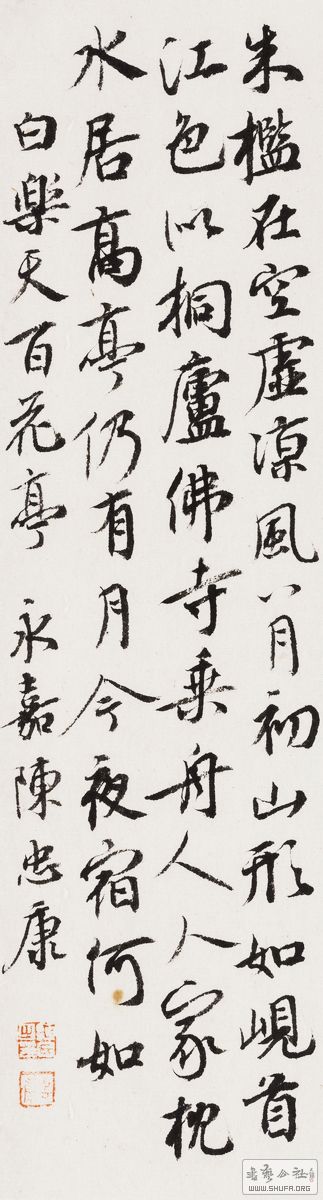 朱檻在空虛涼風八月初山形如峴首
江色似桐廬佛寺乗舟人人家枕
水居高亭仍有月今夜宿何如
白樂天百花亭 永嘉陳忠康
www.SHUFA.ORG